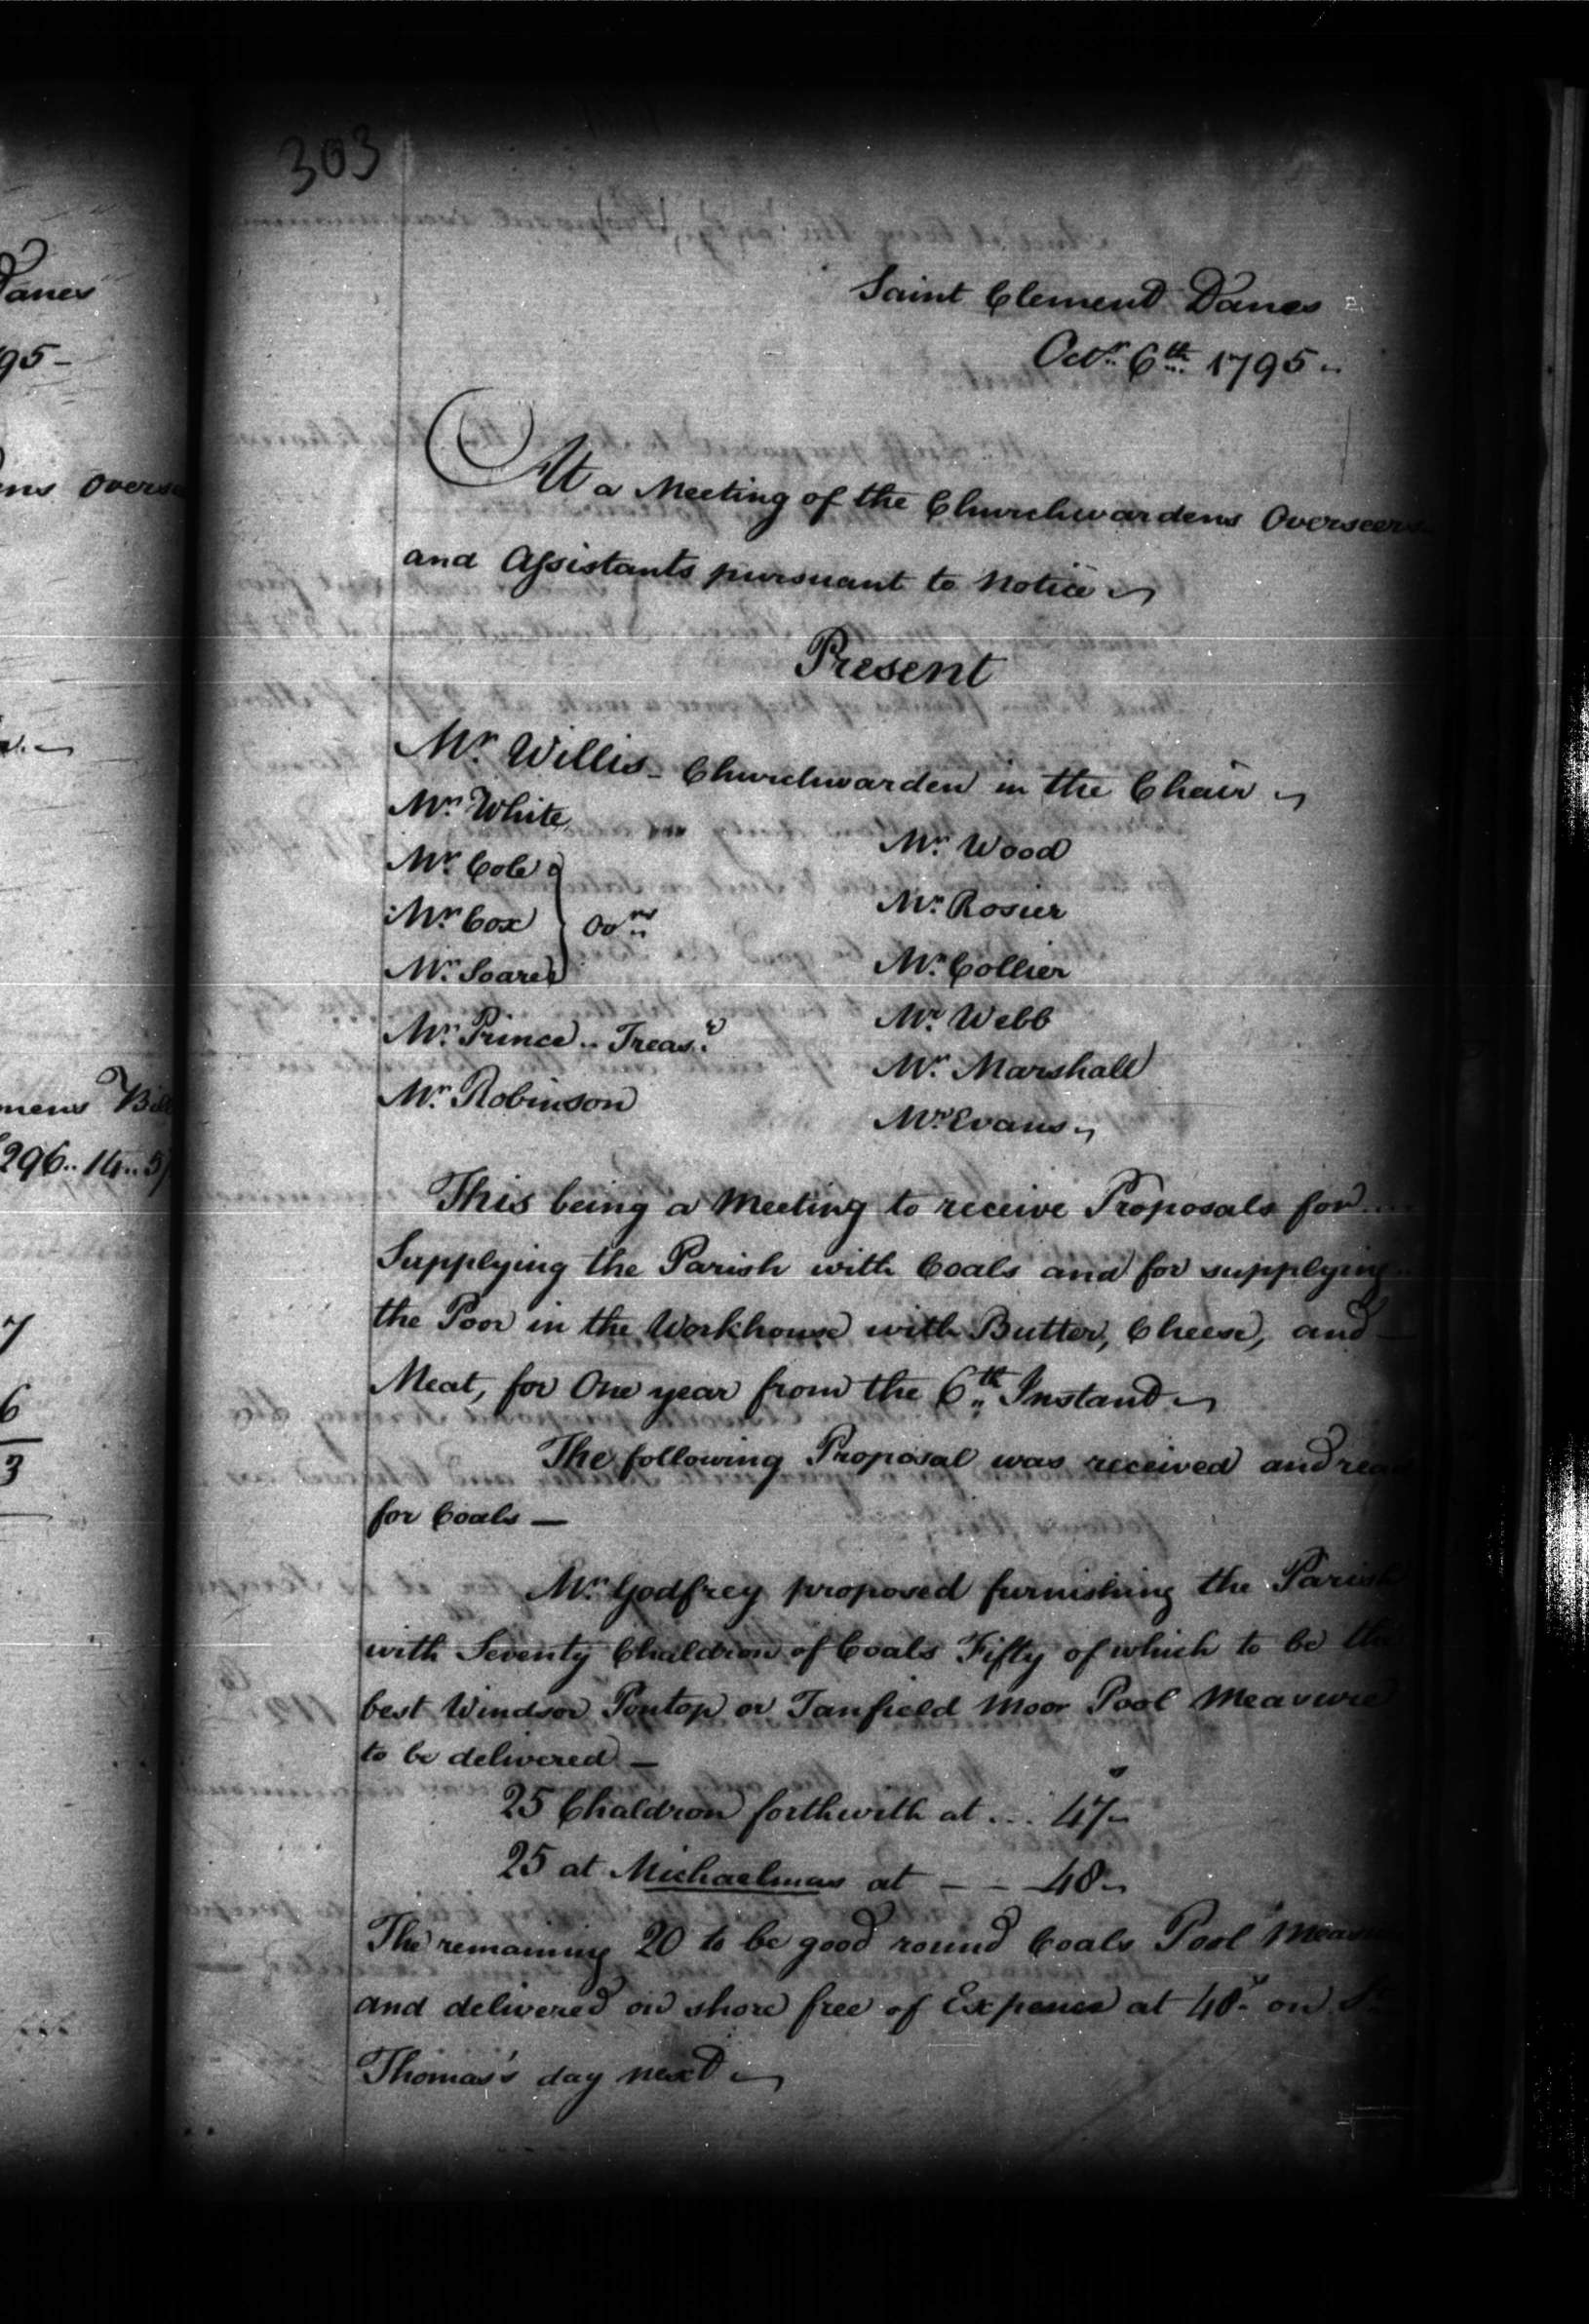 303
Saint Clement Danes
Octr. 6th. 1795
At a Meeting of the Churchwardens Overseers
and Assistants pursuant to Notice
Present
Mr. Willis - Churchwarden in the Chair
Mr. White
Mr. Cole
Mr. Cox } Ovrs.
Mr. Soared
Mr. Prince .. Treasr.
Mr. Robinson
Mr. Wood
Mr. Rosier
Mr. Collier
Mr. Webb
Mr. Marshall
Mr. Evans
This being a Meeting to receive Proposals for
Supplying the Parish with Coals and for supplying
the Poor in the Workhouse with Butter, Cheese, and
Meat, for One year from the 6th. Instant
The following Proposal was received and read
for Coals —
Mr. Godfrey proposed furnishing the Parish
with Seventy Chaldron of Coals Fifty of which to be the
best Windsor Pontop or Tanfield Moor Pool Measure
to be delivered —
25 Chaldron forthwith at ... 47s-
25 at Michaelmas at — — 48-
The remaining 20 to be good round Coals Pool Measure
and delivered on shore free of Expence at 48s. on St.
Thomas's day next
Danes
95-
ens Overs
mens Bill
296..14..5
7
6
3